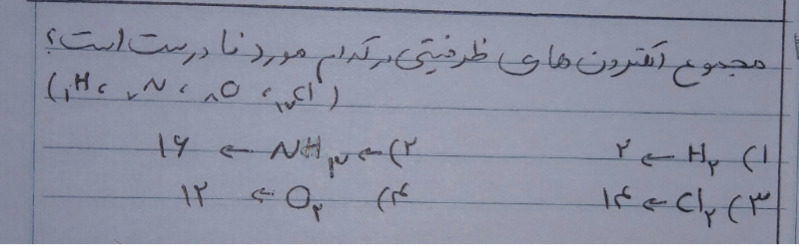 مجموع الکترون های ظرفیتی در کدام مورد نادرست است؟
(₁H، ₇N، ₈O، ₁₇Cl)
۱) H₂ ← ۲ ۲) ← NH₃ ← ۱۶
۳) Cl₂ ← ۱۴ ۴) O₂ ← ۱۲